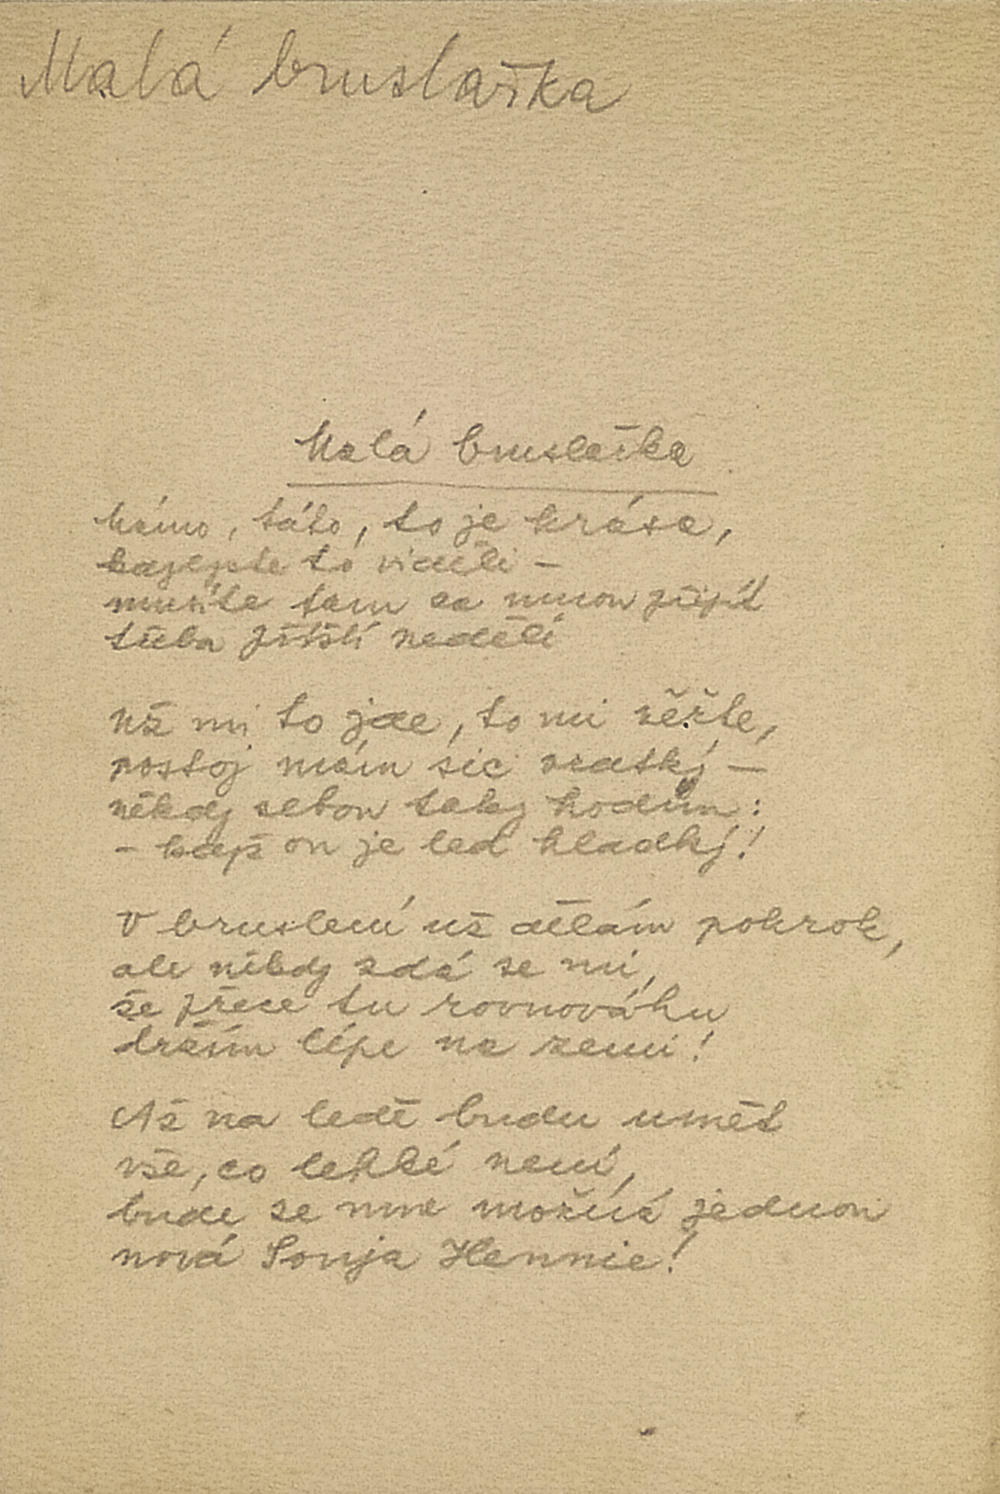 Malá bruslařka
Malá bruslařka
Mámo, táto, to je krása,
kdybyste to viděli –
musíte tam za mnou přijít
třeba příští neděli
Už mi to jde, to mi věřte,
postoj mám sic vratký –
někdy sebou taky hodím:
– když on je led hladký!
V bruslení už dělám pokrok,
ale někdy zdá se mi,
že přece tu rovnováhu
držím lépe na zemi!
Až na ledě budu umět
vše, co lehké není,
bude ze mne možná jednou
nová Sonja Hennie!